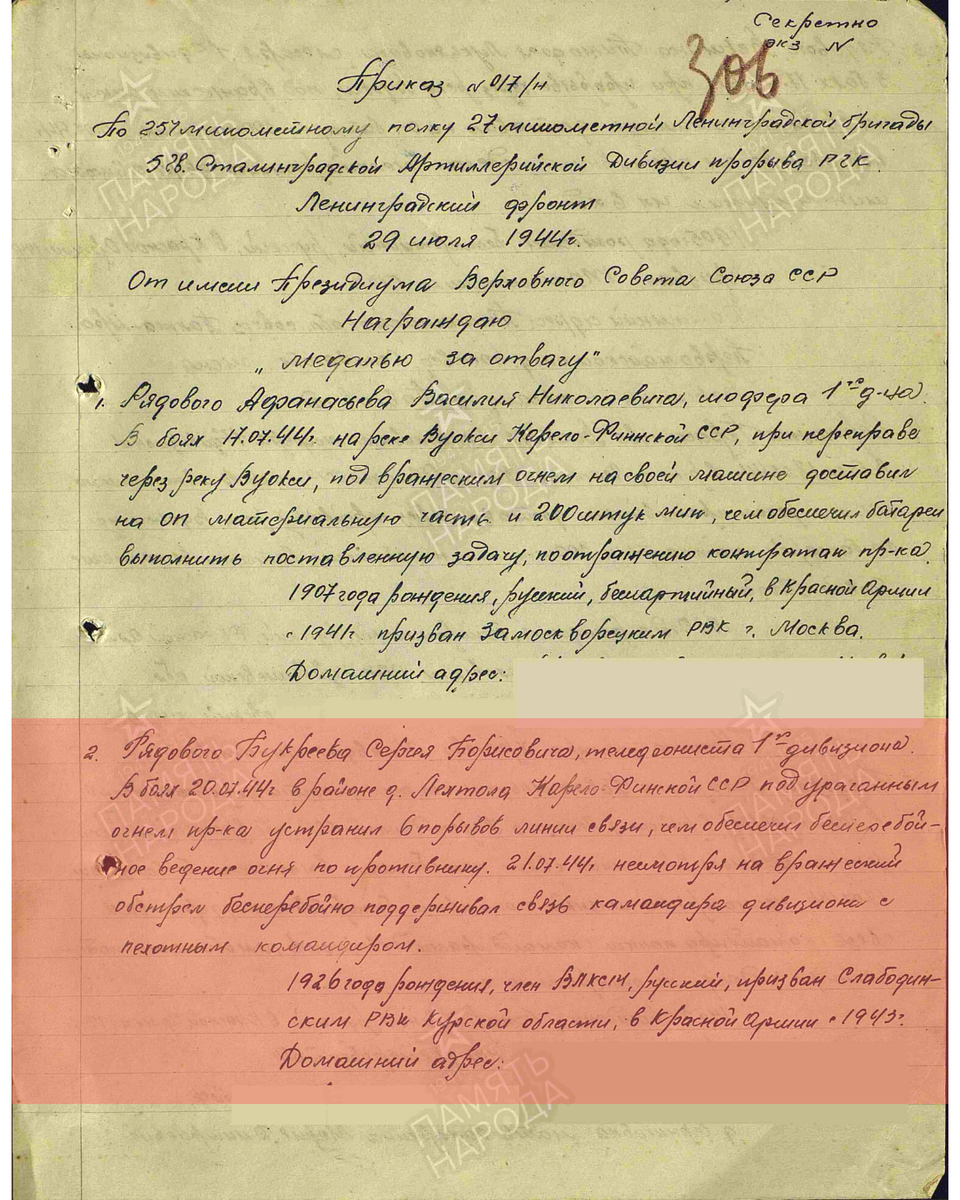 Секретно
экз N
306
Приказ N 017/н
По 257 минометному полку 27 минометной Ленинградской бригады
5 гв. Сталинградской Артиллерийской Дивизии прорыва РГК
Ленинградский фронт
29 июля 1944г.
От имени Президиума Верховного Совета Союза ССР
Награждаю
„Медалью за отвагу"
1. Рядового Афанасьева Василия Николаевича, шофера 1го д-на.
В боях 17.07.44г. на реке Вуокси Карело-Финнской ССР, при переправе
через реку Вуокси, под вражеским огнем на своей машине доставил
на ОП материальную часть и 200 штук мин, чем обеспечил батареи
выполнить поставленную задачу, по отражению контратак пр-ка.
1907 года рождения, русский, беспартийный, в Красной Армии
с 1941г. призван Замоскворецким РВК г. Москва.
Домашний адрес:
2. Рядового Букреева Сергея Борисовича, телефониста 1го дивизиона.
В боях 20.07.44г в районе д. Лехтола Карело-Финской ССР под ураганным
огнем пр-ка устранил 6 порывов линии связи, чем обеспечил бесперебой-
ное ведение огня по противнику. 21.07.44г несмотря на вражеский
обстрел бесперебойно поддерживал связь камандира дивизиона с
пехотным командиром.
1926 года рождения, член ВЛКСМ, русский, призван Слободин-
ским РВК Курской области, в Красной Армии с 1943г.
Домашний адрес:
ПАМЯТЬ
НАРОДА